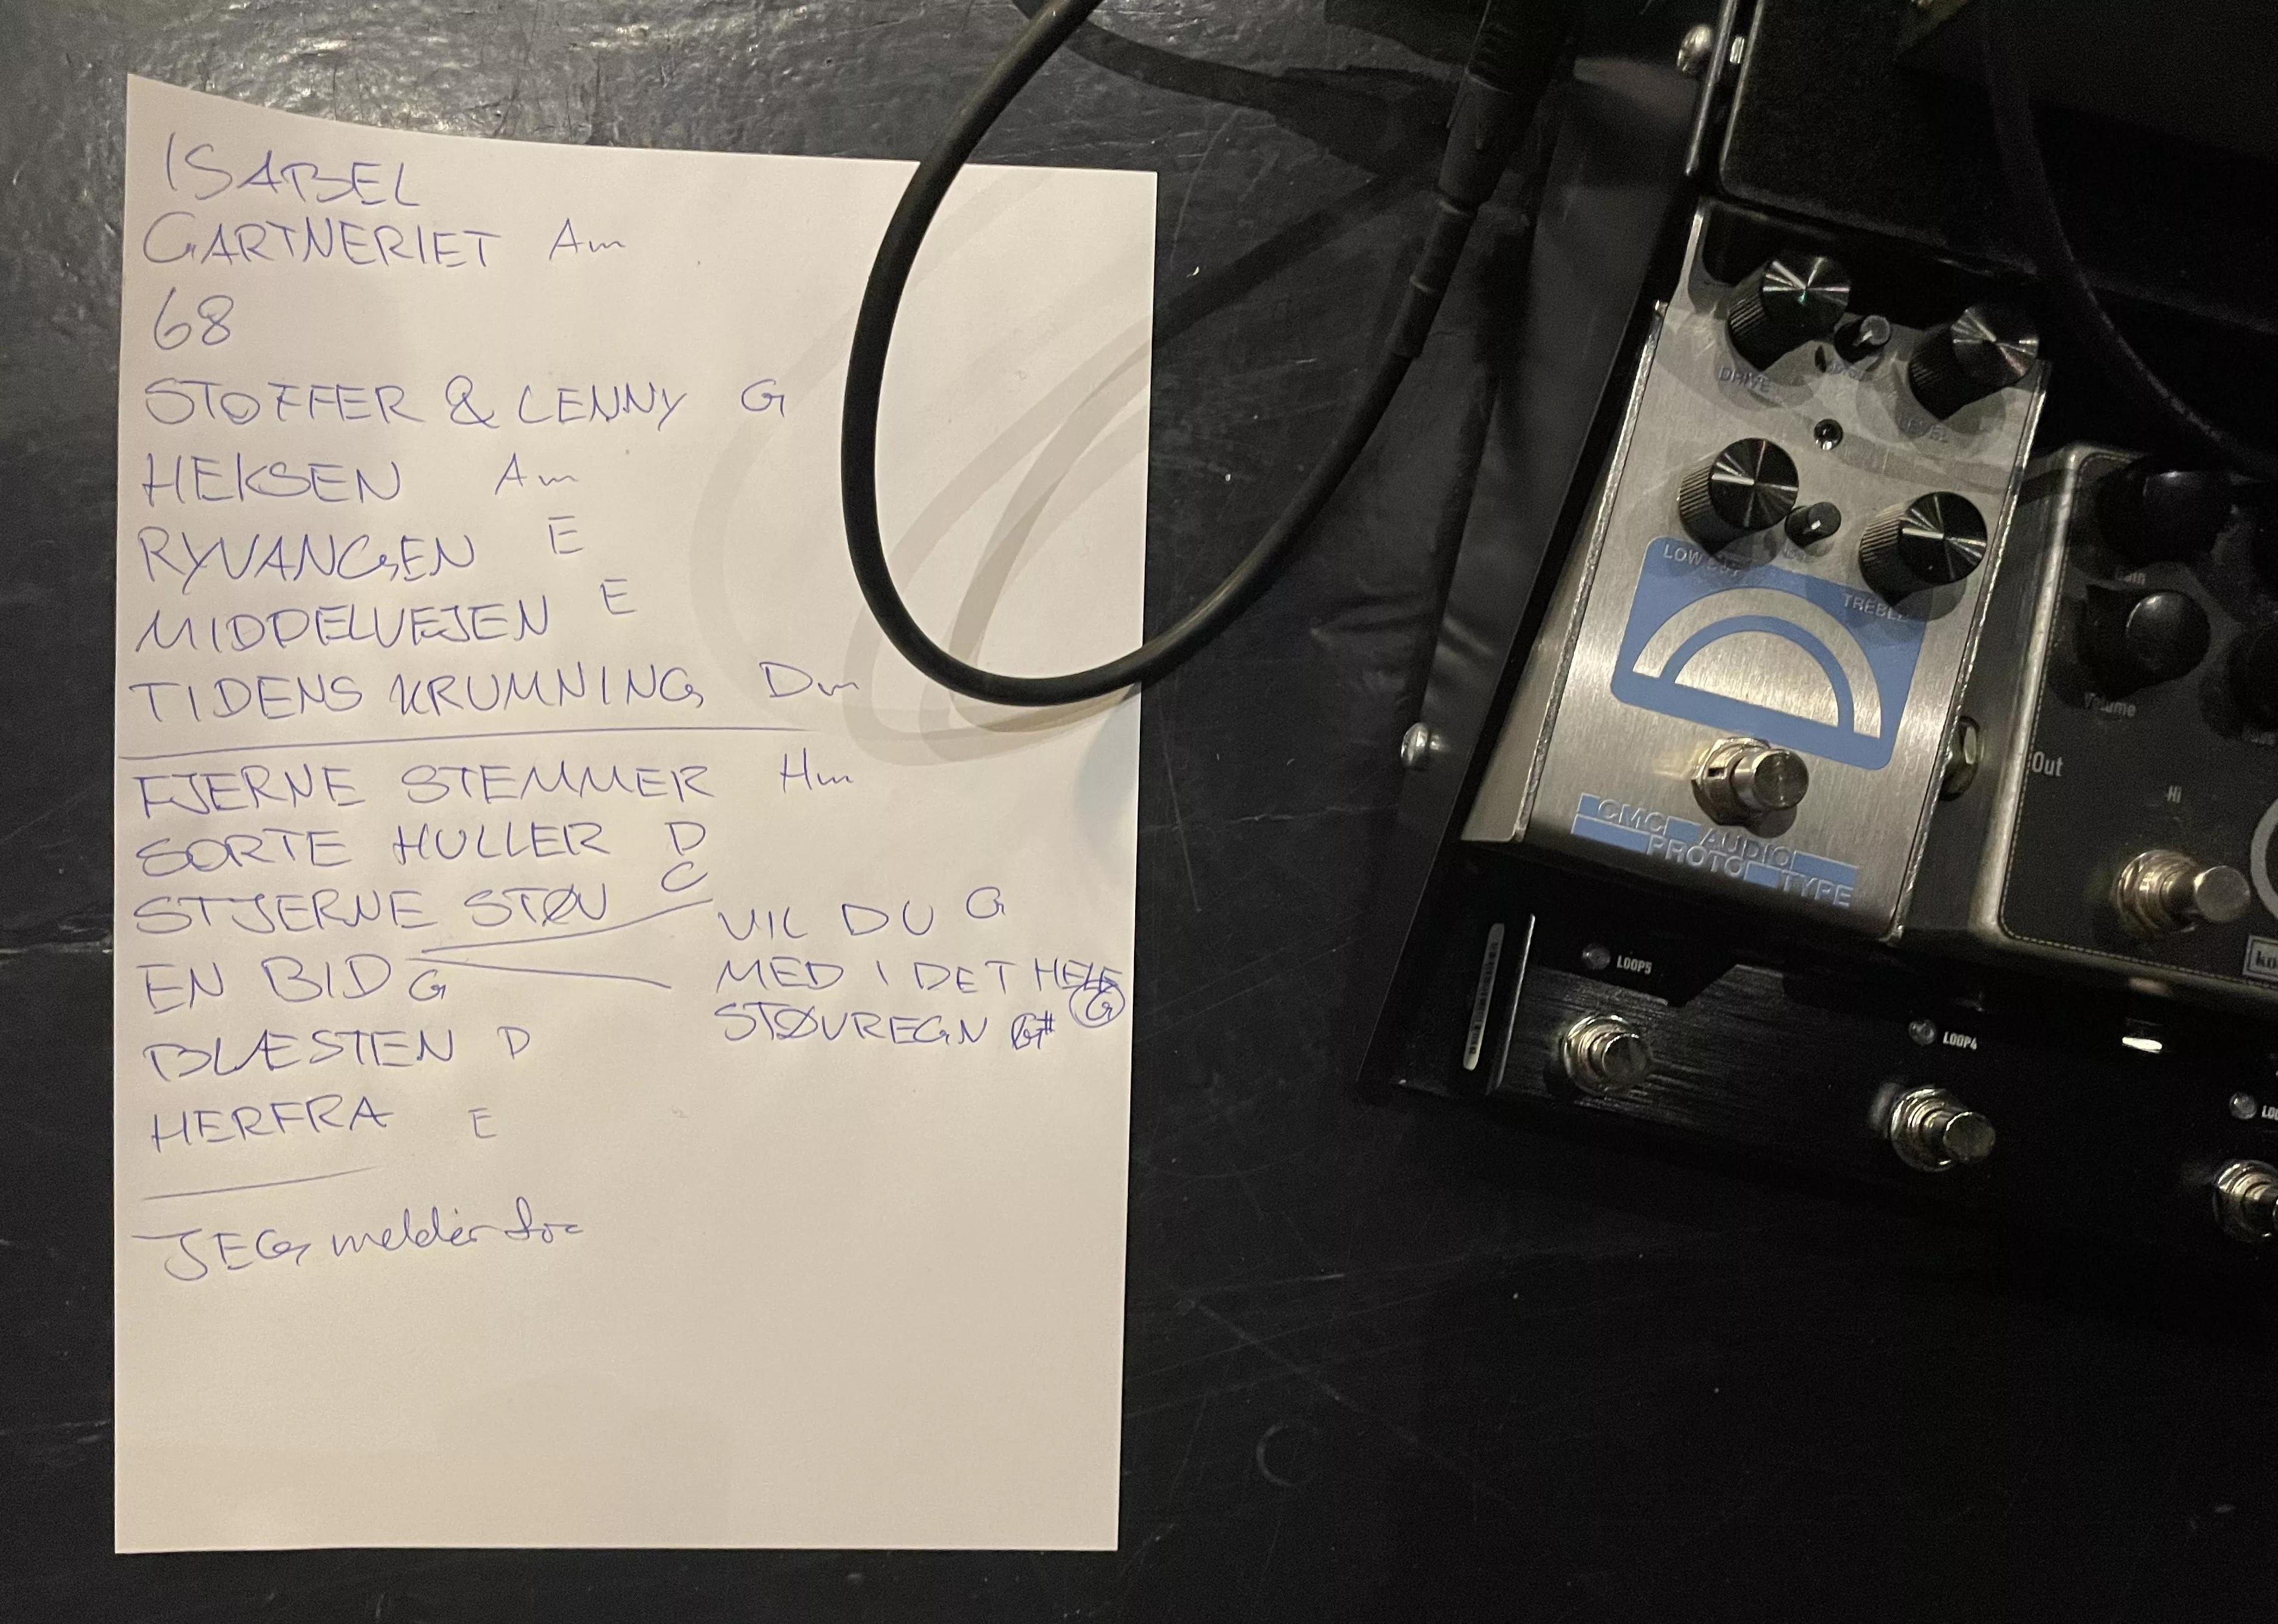 ISABEL
GARTNERIET Am
68
STOFFER & LENNY G
HEKSEN Am
RYVANGEN E
MIDDELVEJEN E
TIDENS KRUMNING Dm
FJERNE STEMMER Hm
SORTE HULLER D
STJERNE STØV C
EN BID G
VIL DU G
MED I DET HELE G
STØVREGN G#
BLÆSTEN D
HERFRA E
JEG melder
DRIVE
LEVEL
LOW CUT
TREBLE
CMC AUDIO
PROTO TYPE
LOOP5
LOOP4
Gain
Volume
Out
Hi